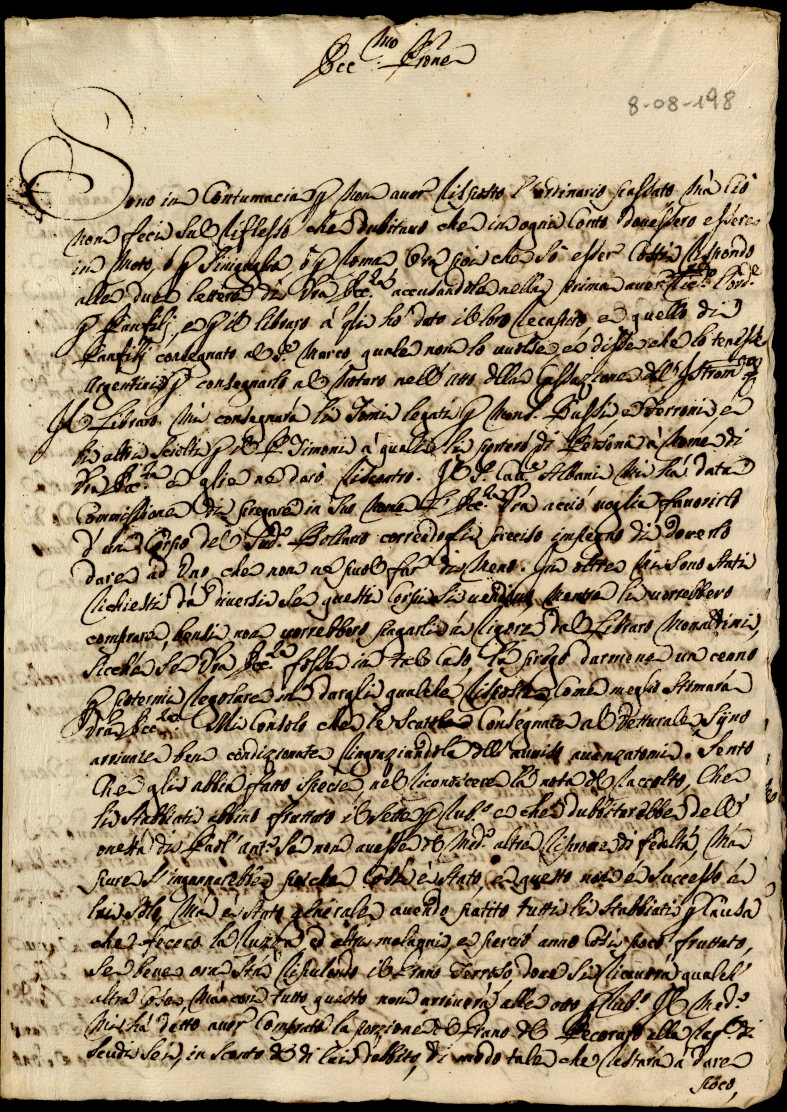 Ecc.mo Prone
8-08-198
Sono in Contumacia p non aver risposto l'ordinario passato, mà ciò
non feci sul riflesso che dubitavo che in ogni Conto dovessero essere
in Moto, ò p Sinigaglia, ò p Roma. Ora poi che sò esser Costì rispondo
alle due lettere di Vra Ecc.za accusandole nella prima aver
p Panfilj, e p il libraro à q.li hò dato il loro recapito e quello di
Panfilj consegnato al S.r Marco, quale non lo volse, e disse che lo tenesse
Argentini p consegnarlo al Notaro nell'Atto della Cassazione dell'Istrom.to
Il Libraro Mi consegnarà li Tomi legati p Mons.r Bussi e Ferroni, e
li altri sciolti p il P. Timoni à quale li porterò di Persona à Nome di
Vra Ecc.za e glie ne darò riscontro. Il S.r Cav.e Albani Mi hà data
Commissione di pregare in Suo Nome l'Ecc.za Vra acciò voglia favorirlo
d'un Corpo del Sud.o Bollario correndogli preciso impegno di doverlo
dare ad Uno, che non ne puol far di Meno. In oltre Mi Sono Stati
richiesti da diversi se questi Corpi si vendino Mentre li vorrebbero
comprare, bensì non vorrebbero pagarli à rigore dal Libraro Monaldini,
sicché se Vra Ecc.za fosse in tal Caso, La prego darmene un cenno
p potermi regolare in dargli qualche risposta, Come meglio Stimarà
Vra Ecc.za. Mi Consolo che le Scattole Consegnate al Vetturale Sijno
arrivate ben condizionate ringraziandola dell'auviso avanzatomi. Sento
Che gli abbia fatto specie nel riconoscere la nota del raccolto, Che
li Stabbiati abbino fruttato il Sette p Rub.o e che dubbitarebbe dell'
onestà di Paol' ant.o Se non avesse del Med.o altre riprove di fedeltà, Mà
pure S'ingannarebbe perche Così è Stato, e questo non è Successo à
lui Solo, Mà è Stato generale avendo patito tutti li Stabbiati p Causa
che fecero la e altri malanni, e perciò anno Così poco fruttato,
Se bene ora Stà ripulendo il Grano Terroso, dove Si ricaverà qualch'
altra Cosa, Mà con tutto questo non arriverà alle otto p Rub.o Il Med.o
Mi hà detto aver Comprato la porzione del Grano del Pecoraro alla rag.e di
Scudi Sei, in Sconto del di lui debito, di modo tale che restarà à dare
poco,